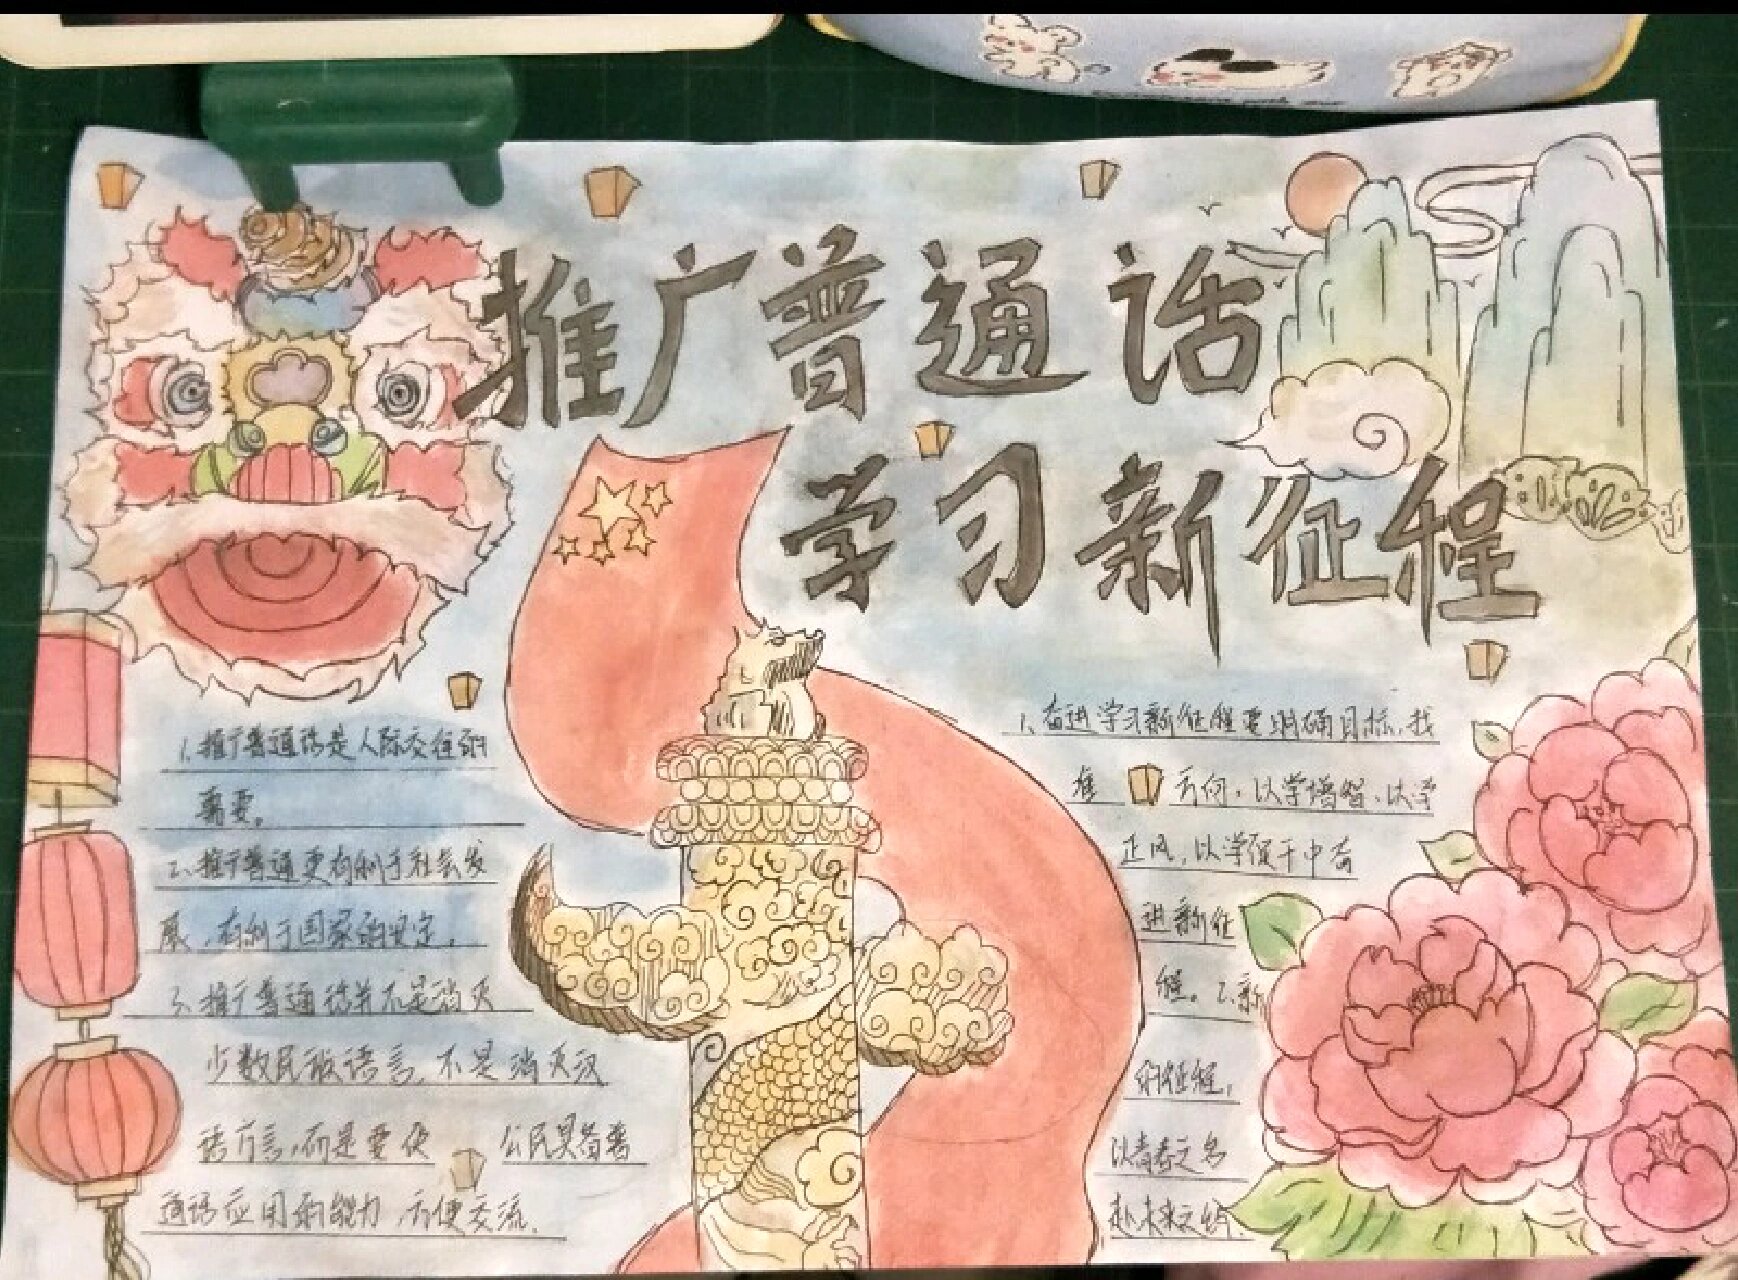 推广普通话
学习新征程
1、推广普通话是人际交往的
需要。
2、推广普通更有利于社会发
展,有利于国家的安定。
3、推广普通话并不是消灭
少数民族语言,不是消灭汉
语方言,而是要使 公民具备普
通话应用的能力,方便交流.
1、奋进学习新征程要明确目标,找
准 方向,以学增智,以学
正风,以学促干中奋
进新征
程。2、新
的征程,
以青春之名
赴未来之约.